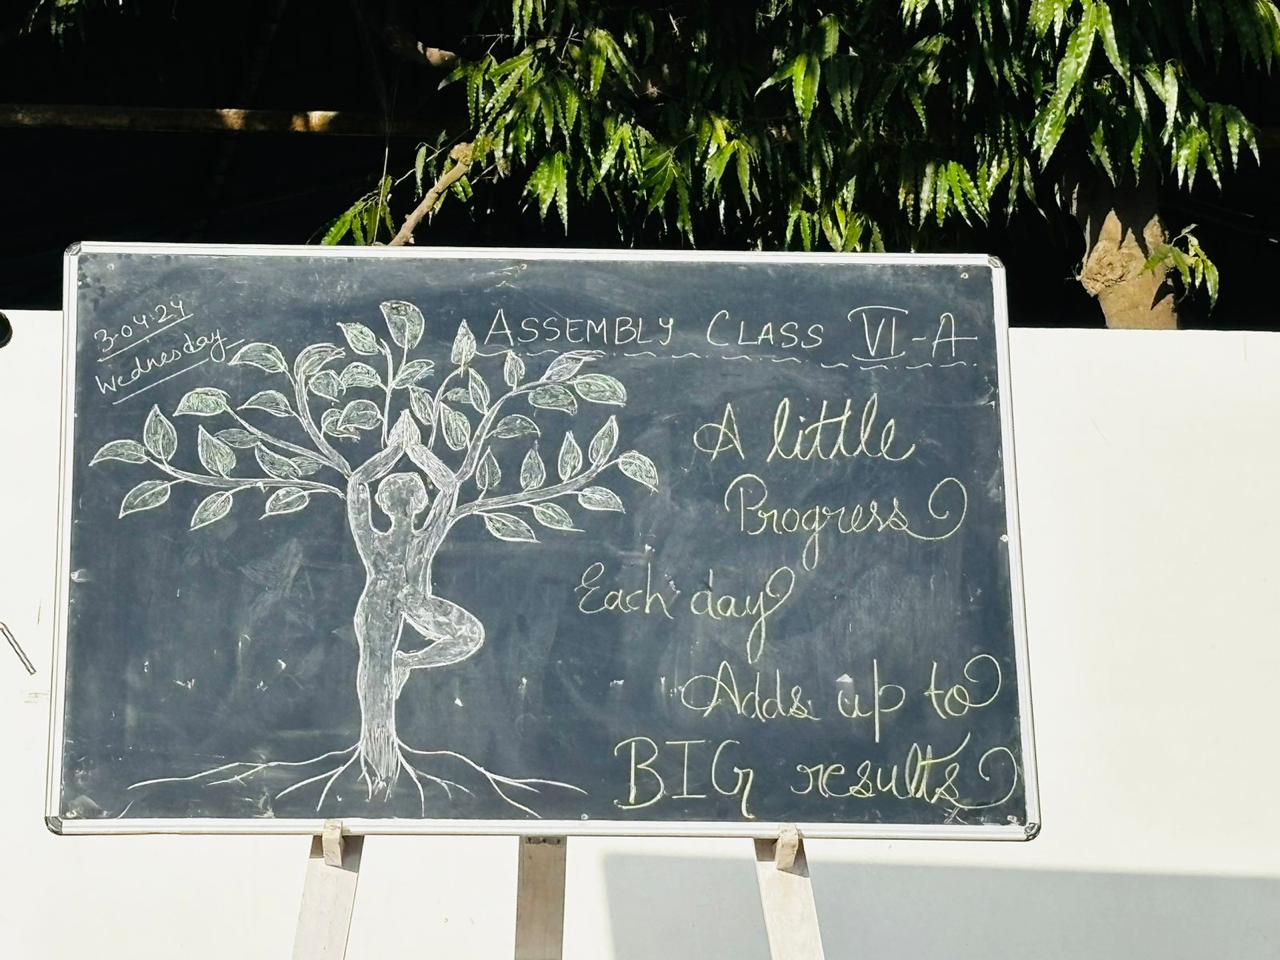 3-04-24
Wednesday
ASSEMBLY CLASS VI-A
A little
Progress
Each day
Adds up to
BIG results